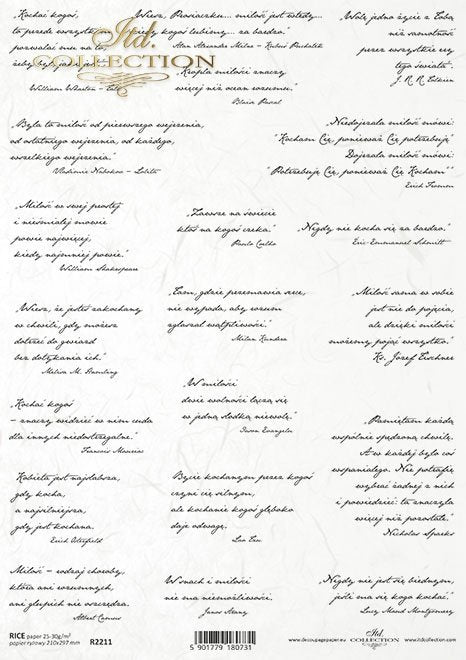 „Kochać kogoś,
to przede wszystkim
pozwalać mu na to,
żeby był, jaki jest."
William Wharton –
„Wiesz, Prosiaczku... miłość jest wtedy...
kiedy kogoś lubimy... za bardzo."
Alan Alexander Milne – Kubuś Puchatek
„Kropla miłości znaczy
więcej niż ocean rozumu."
Blaise Pascal
„Wolę jedno życie z Tobą
niż samotność
przez wszystkie ery
tego świata".
J. R. R. Tolkien
Itd.
COLLECTION
„Była to miłość od pierwszego wejrzenia,
od ostatniego wejrzenia, od każdego,
wszelkiego wejrzenia."
Vladimir Nabokov – Lolita
„Niedojrzała miłość mówi:
"Kocham Cię, ponieważ Cię potrzebuję"
Dojrzała miłość mówi:
"Potrzebuję Cię, ponieważ Cię Kocham""
Erich Fromm
„Miłość w swej prostej
i nieśmiałej mowie
powie najwięcej,
kiedy najmniej powie."
William Shakespeare
„Zawsze na świecie
ktoś na kogoś czeka."
Paulo Coelho
„Nigdy nie kocha się za bardzo."
Eric-Emmanuel Schmitt
„Wiesz, że jesteś zakochany
w chwili, gdy możesz
dotrzeć do gwiazd
bez dotykania ich."
Melisa M. Hamling
„Tam, gdzie przemawia serce,
nie wypada, aby rozum
zgłaszał wątpliwości."
Milan Kundera
„Miłość sama w sobie
jest nie do pojęcia,
ale dzięki miłości
możemy pojąć wszystko."
Ks. Józef Tischner
„Kochać kogoś
– znaczy widzieć w nim cuda
dla innych niedostrzegalne."
Francois Mauriac
„W miłości
dwie wolności łączą się
w jedną słodką niewolę."
Iwan Evangelu
„Pamiętam każdą
wspólnie spędzoną chwilę.
A w każdej było coś
wspaniałego. Nie potrafię
wybrać żadnej z nich
i powiedzieć: ta znaczyła
więcej niż pozostałe."
Nicholas Sparks
Kobieta jest najsłabsza,
gdy kocha,
a najsilniejsza,
gdy jest kochana.
Erich Osterfield
Bycie kochanym przez kogoś
czyni cię silnym,
ale kochanie kogoś głęboko
daje odwagę.
Lao Tzu
Miłość – rodzaj choroby,
która ani rozumnych,
ani głupich nie oszczędza.
Albert Camus
W snach i miłości
nie ma niemożliwości.
Janos Arany
„Nigdy nie jest się biednym,
jeśli ma się kogo kochać".
Lucy Maud Montgomery
RICE paper 25-30g/m²
papier ryżowy 210x297 mm
R2211
5 901779 180731
www.decoupagepaper.eu
Itd.
COLLECTION
www.itdcollection.com